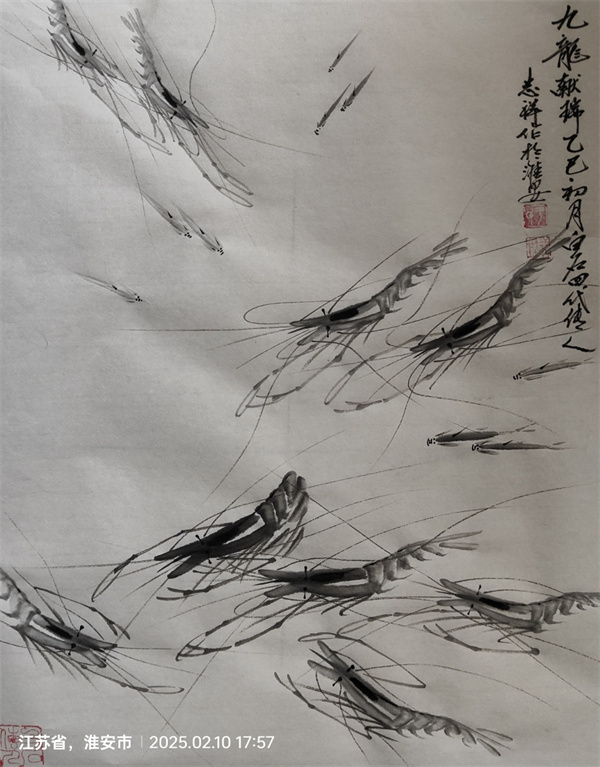 九龍献瑞乙巳初月白石四代传人
志祥作于淮安
江苏省，淮安市 | 2025.02.10 17:57